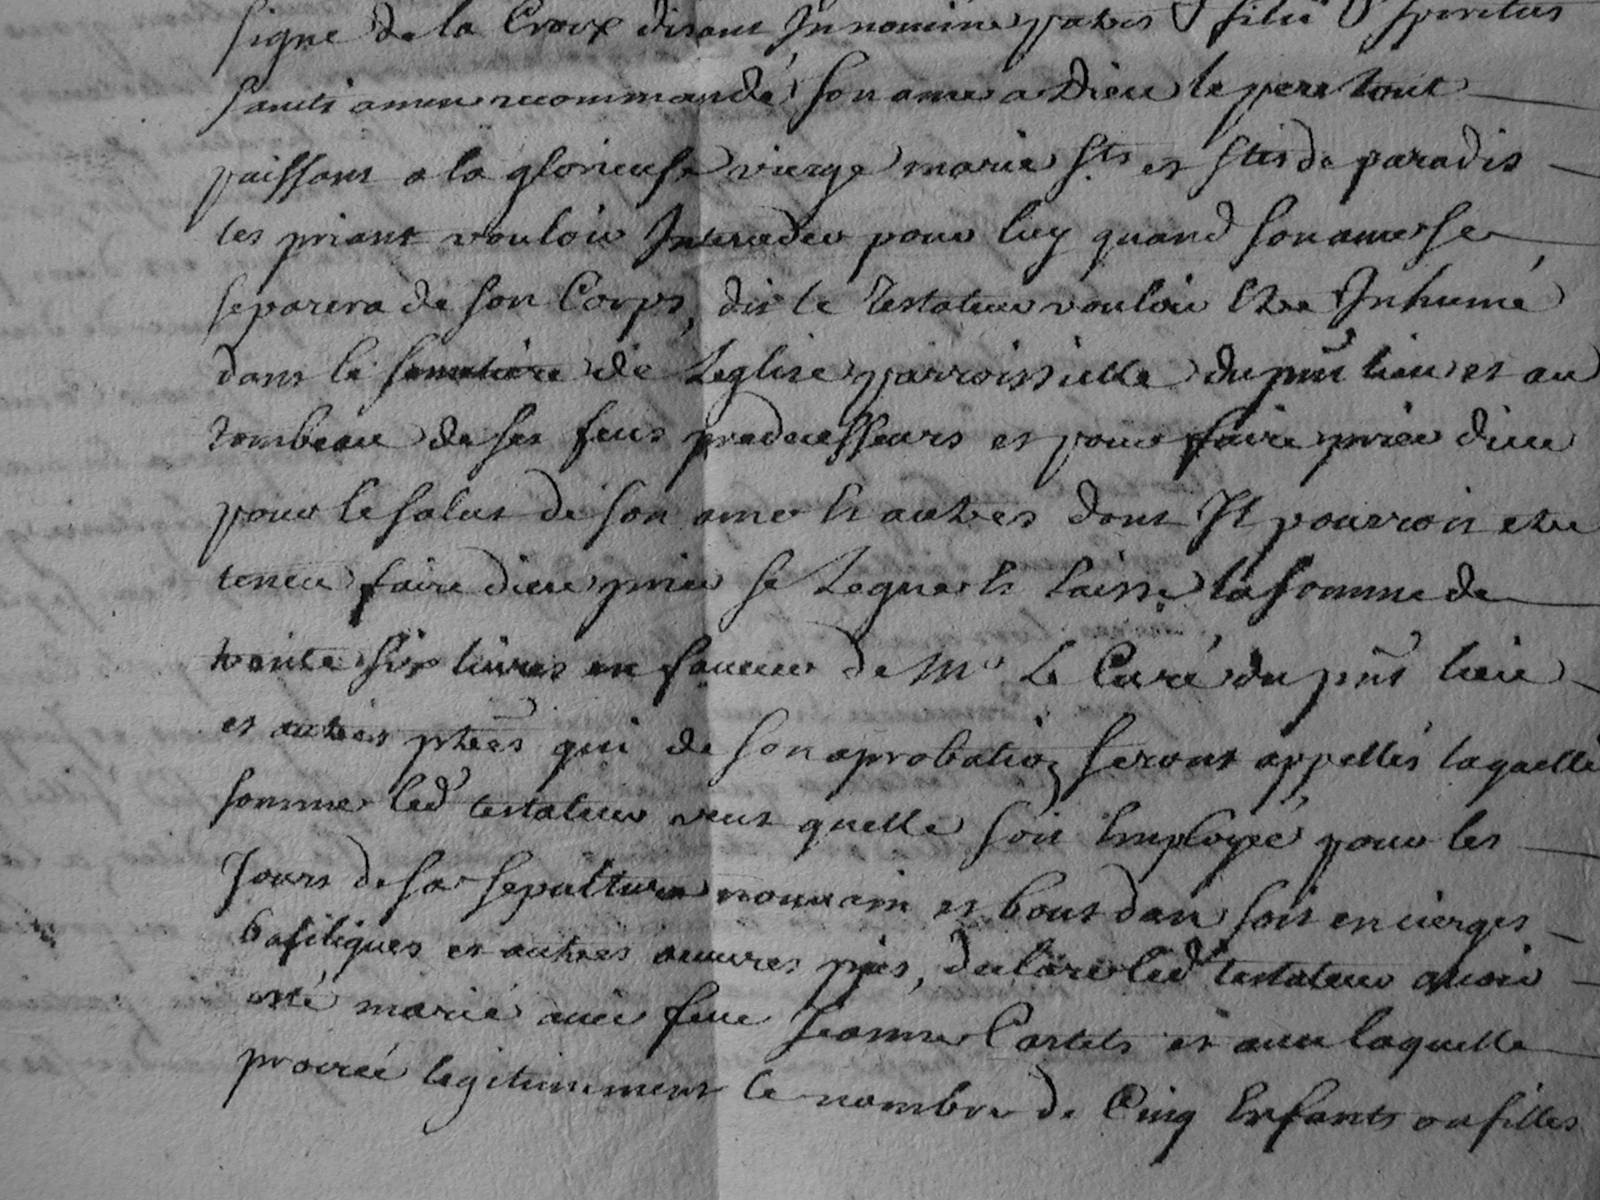 signe de la Croix disant In nomine patris & filii & spiritus
sancti amen recommandé son ame a Dieu le pere tout
puissant a la glorieuse vierge marie Sts et Stes de paradis
les priant vouloir Interceder pour luy quand son ame se
separera de son Corps, dit le Testateur vouloir Etre Inhumé
dans le semetiere de Leglise parroissielle du pnt lieu et au
tombeau de ses feus predecesseurs et pour faire prier dieu
pour le salut de son ame et autres dont Il pourroit etre
teneu faire dieu prier se Legue et laisse la somme de
trente six livres en faveur de Mr Le Curé du pnt lieu
et autres ptres qui de son aprobation seront appellés laquelle
somme led testateur veut quelle soit Employée pour les
Jours de sa sepulture nouvain et bout dan soit en cierges
basiliques et autres œuvres pies, declare led testateur avoir
été marié avec feue Jeanne Castels et avec laquelle
procréé legitimement le nombre de Cinq Enfants ou filles